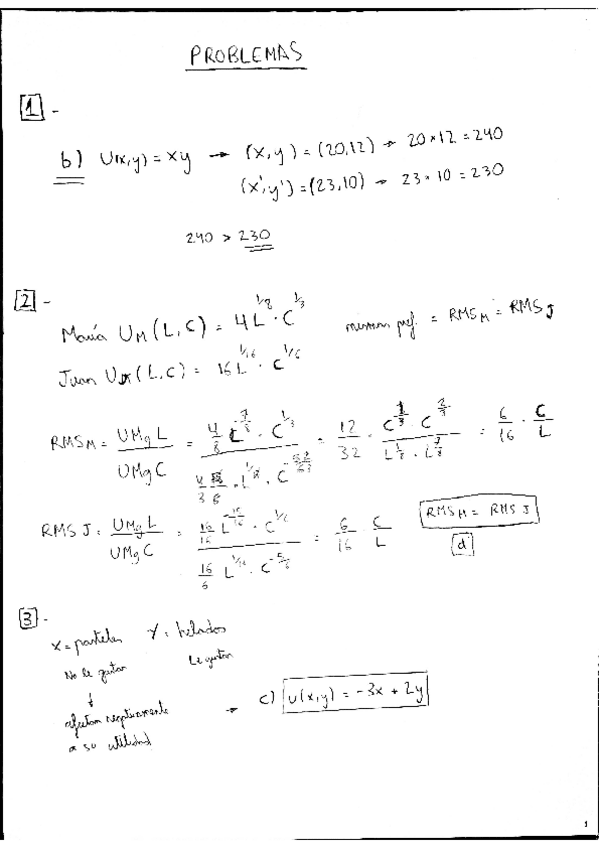 PROBLEMAS
1 -
b) U(x,y) = xy → (x,y) = (20,12) → 20*12 = 240
(x',y') = (23,10) → 23*10 = 230
240 > 230
2 -
María U_M(L,C) = 4L^{1/8} · C^{1/3}
mismas pref. = RMS_M = RMS_J
Juan U_J(L,C) = 16L^{1/16} · C^{1/6}
RMS_M = UMgL / UMgC = (4/8 L^{-7/8} · C^{1/3}) / (4/3 · L^{1/8} · C^{-2/3}) = 12/32 · (C^{1/3} · C^{2/3}) / (L^{1/8} · L^{7/8}) = 6/16 · C/L
RMS J = UMgL / UMgC = (16/16 L^{-15/16} · C^{1/6}) / (16/6 L^{1/16} · C^{-5/6}) = 6/16 C/L
RMS_M = RMS J
d
3 -
x = pasteles y = helados
No le gustan Le gustan
↓
afectan negativamente
a su utilidad
→ c) u(x,y) = -3x + 2y
1